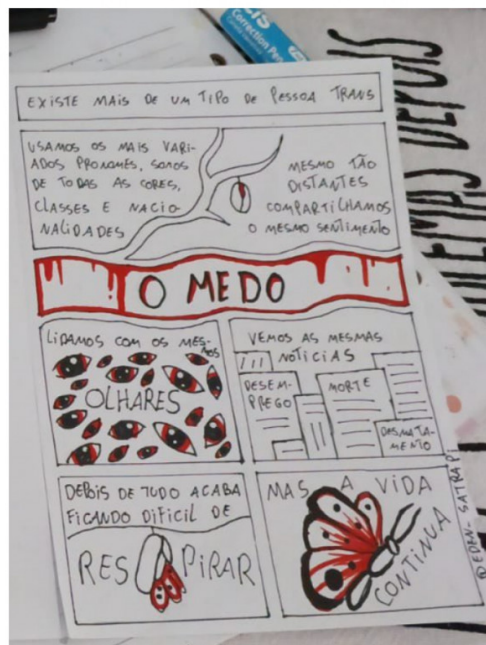 Correction Pen
EXISTE MAIS DE UM TIPO DE PESSOA TRANS
USAMOS OS MAIS VARI-
ADOS PRONOMES, SOMOS
DE TODAS AS CORES,
CLASSES E NACIO-
NALIDADES
MESMO TÃO
DISTANTES
COMPARTILHAMOS
O MESMO SENTIMENTO
O MEDO
LIDAMOS COM OS MES-
MOS
OLHARES
VEMOS AS MESMAS
NOTICIAS
DESEM-
PREGO
MORTE
DESMATA-
MENTO
DEPOIS DE TUDO ACABA
FICANDO DIFICIL DE
RESPIRAR
MAS A VIDA
CONTINUA
@EDEN_SATRAPI
DEPOIS